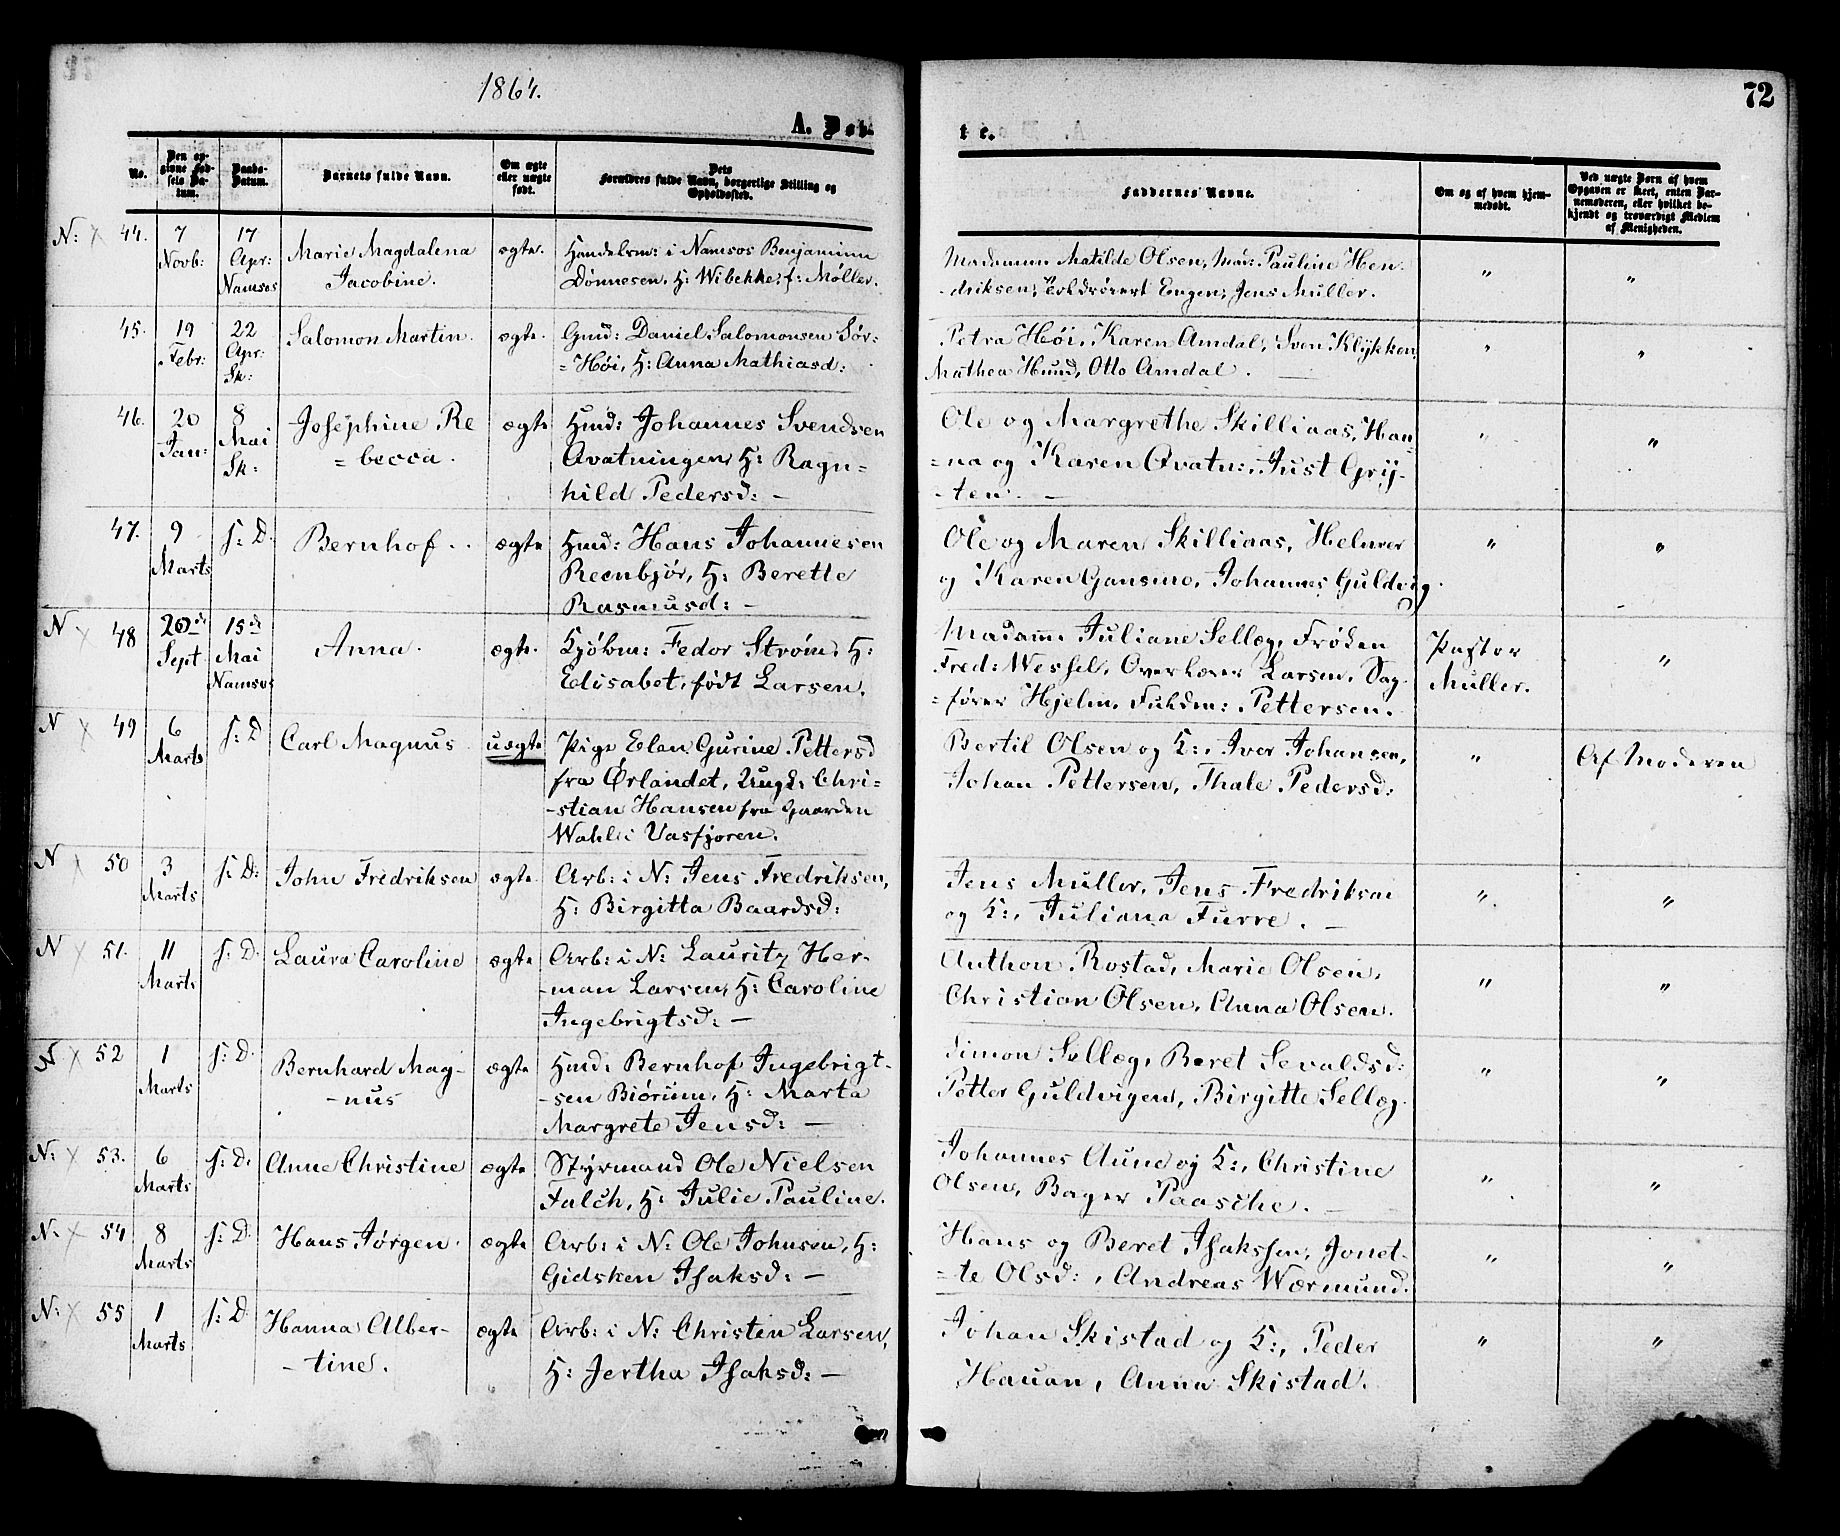 1864.
72
A. Døb-
te.
No.
Den opgivne Fødsels Datum.
Daabs-Datum.
Barnets fulde Navn.
Om ægte eller uægte født.
Dets Forældres fulde Navn, borgerlige Stilling og Opholdssted.
Faddernes Navne.
Om og af hvem hjemmedøbt.
Ved uægte Børn af hvem Opgaven er skeet, enten Barnemoderen, eller hvilket bekjendt og troværdigt Medlem af Menigheden.
N: x 44. 7 Novb: 17 Apr: Namsos
Marie Magdalena
Jacobine.
ægte.
Handelsm: i Namsos Benjaminn
Dønnesen, H: Wibekke, f: Møller.
Madamm Matilde Olsen, Mad: Pauline Hen
-driksen, Engen, Jens Muller.
" "
45. 19 Febr: 22 Apr: Sk:
Salomon Martin.
ægte.
Gmd: Daniel Salomonsen Sør-
=Høi, H: Anna Mathiasd:
Petra Høi, Karen Amdal, Sven Klykken,
Mathea Hund, Otto Amdal.
" "
46. 20 Jan: 8 Mai Sk:
Josephine Re
=becca.
ægte
Hmd: Johannes Svendsen
Avatningen, H: Ragn=
hild Pedersd: —
Ole og Margrethe Skilliaas, Han-
=na og Karen Avatn:, Just Grÿ-
-ten. —
" "
47. 9 Marts s: D.
Bernhof.
ægte
Hmd: Hans Johannesen
Reenbjør, H: Berette
Rasmusd: —
Ole og Maren Skilliaas, Helmer
og Karen Gansmo, Johannes Guldvig.
" "
N x 48 20de Sept 15de Mai Namsos
Anna.
ægte.
Kjøbm: Fedor Strøm, H:
Elisabet, født Larsen.
Madamm Juliane Sellæg, Frøken
Fred: Wessel, Overlærer Larsen, Sag-
=fører Hjelm, Fuldm: Pettersen.
Pastor
Muller.
"
N x 49 6 Marts s: D
Carl Magnus
uægte
Pige Elen Gurine Pettersd
fra Ørlandet, Ungk: Chri=
-stian Hansen fra Gaarden
Wahl i Vasfjøren.
Bertil Olsen og K:, Iver Johansen,
Johan Pettersen, Thale Pedersd:
"
Af Moderen
N x 50 3 Marts s: D:
John Fredriksen
ægte.
Arb: i N: Jens Fredriksen,
H: Birgitta Baardsd:
Jens Muller, Jens Fredriksen
og K:, Juliana Furre. —
" "
N x 51. 11 Marts s: D.
Laura Caroline
ægte
Arb: i N: Lauritz Her-
-man Larsen, H: Caroline
Ingebrigtsd: —
Anthon Rostad, Marie Olsen,
Christian Olsen, Anna Olsen.
" "
N x 52 1 Marts s: D.
Bernhard Mag-
-nus
ægte
Hmd: Bernhof Ingebrigt-
-sen Biørum, H: Marta
Margrete Jensd: —
Simon Sellæg, Beret Sevaldsd:
Petter Guldvigen, Birgitte Sellæg.
" "
N: x 53. 6 Marts s: D.
Anne Christine
ægte
Styrmand Ole Nielsen
Falch, H: Julie Pauline.
Johannes Aune og K:, Christine
Olsen, Bager Paasche.
" "
N: x 54 8 Marts s: D.
Hans Jørgen.
ægte
Arb: i N: Ole Johnsen, H:
Gidsken Isaksd: —
Hans og Beret Isakssen, Jonet-
=te Olsd:, Andreas Wærmund.
" "
N: x 55 1 Marts s: D.
Hanna Alber-
-tine.
ægte
Arb: i N: Christen Larsen,
H: Jertha Isaksd: —
Johan Skistad og K:, Peder
Hauan, Anna Skistad.
" "